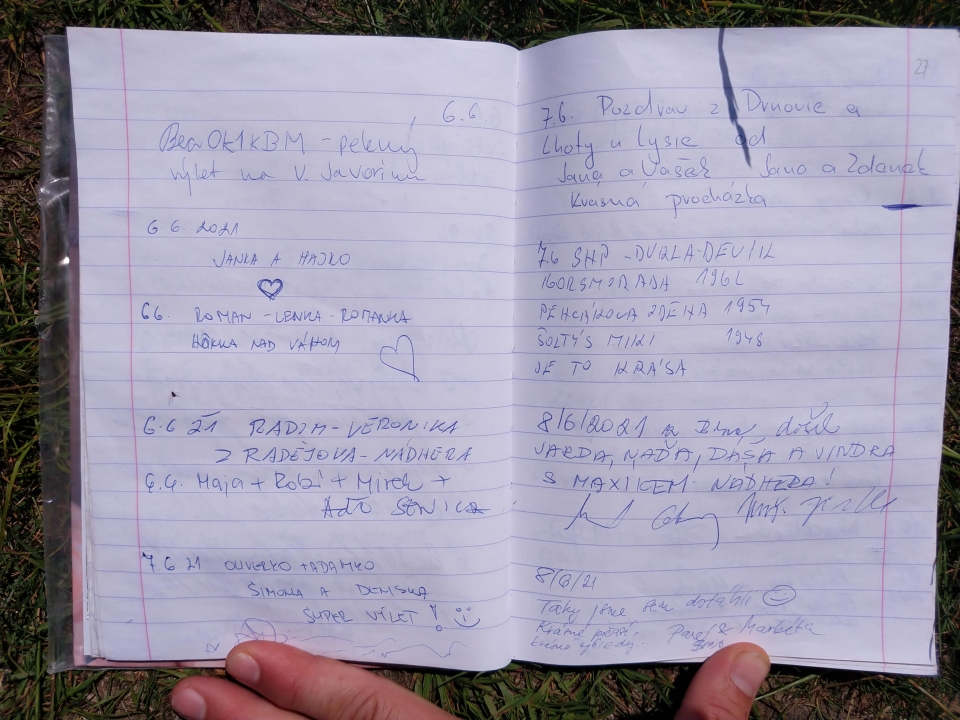 6.6.
Bea OK1KBM - pekný
výlet na V. Javorinu
6 6. 2021
JANKA A HAJKO
66. ROMAN - LENKA - ROMANKA
HÔRKA NAD VÁHOM
6.6 21 RADIM - VERONIKA
Z RADĚJOVA - NÁDHERA
6.6. Maja + Robi + Mirek +
SENICA
7.6 21 OLIVERKO + ADAMKO
ŠIMONA A DENISKA
SUPER VÝLET!
27
7.6. Pozdrav z Drnovic a
Lhoty u Lysic od
Jana a Vašek Jana a Zdenek
Krásná procházka
7.6 SHP - DUBLA-DEVIL
1962
ZDENA 1954
ŠOLTÝS MIKI 1948
JE TO KRÁSA
8/6/2021 z Brna, došli
JARDA, NAĎA, DÁŠA A VINDRA
S MAXÍKEM. NÁDHERA!
8/6/21
Taky jsme sem dotáhli
Krásné počasí,
výhledy. Pavel & Markéta
Brno